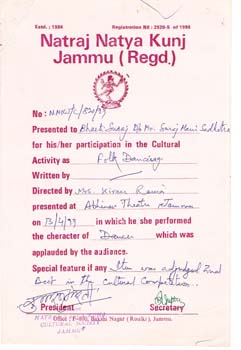 Estd. : 1984 Registration No : 2920-S of 1984
Natraj Natya Kunj
Jammu (Regd.)
No: NNKJ/C/820/99
Presented to Bharti Suraj D/o Mr. Suraj Mani Sadhotra
for his/her participation in the Cultural
Activity as Folk Dancing
Written by
Directed by Mrs. Kiran
presented at Abhinav Theatre Jammu
on 13/4/99 in which he she performed
the cheracter of Dancer which was
applauded by the audience.
Special feature if any Item was adjudged 2nd
Best in the Cultural Competition.
President Secretary
CULTURAL SOCIETY
JAMMU
Office : F-410, Bakshi Nagar (Roulki), Jammu.